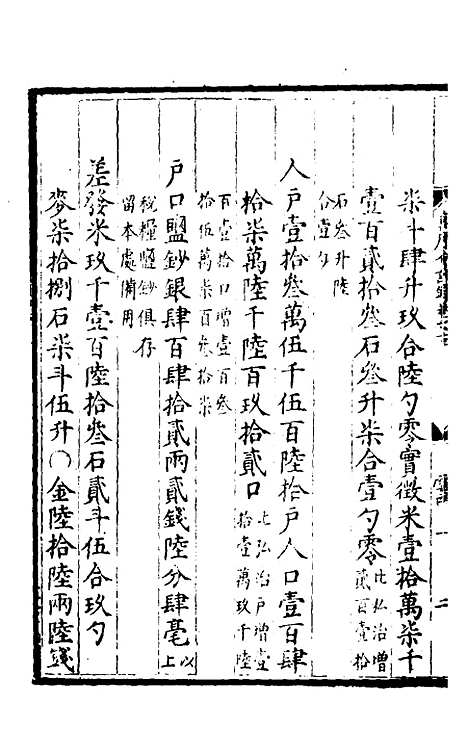 柒斗肆升玖合陸勺零實徵米壹拾萬柒千
壹百貳拾叁石叁升柒合壹勺零比弘治增
貳百壹拾
石叁升陸
合壹勺
人戶壹拾叁萬伍千伍百陸拾戶人口壹百肆
拾柒萬陸千陸百玖拾貳口比弘治戶增壹
拾壹萬玖千陸
百壹拾口增壹百叁
拾伍萬柒百叁拾柒
戶口鹽鈔銀肆百肆拾貳兩貳錢陸分肆毫以
上
稅糧鹽鈔俱存
留本處備用
差發米玖千壹百陸拾叁石貳斗伍合玖勺
麥柒拾捌石柒斗伍升〇金陸拾陸兩陸錢